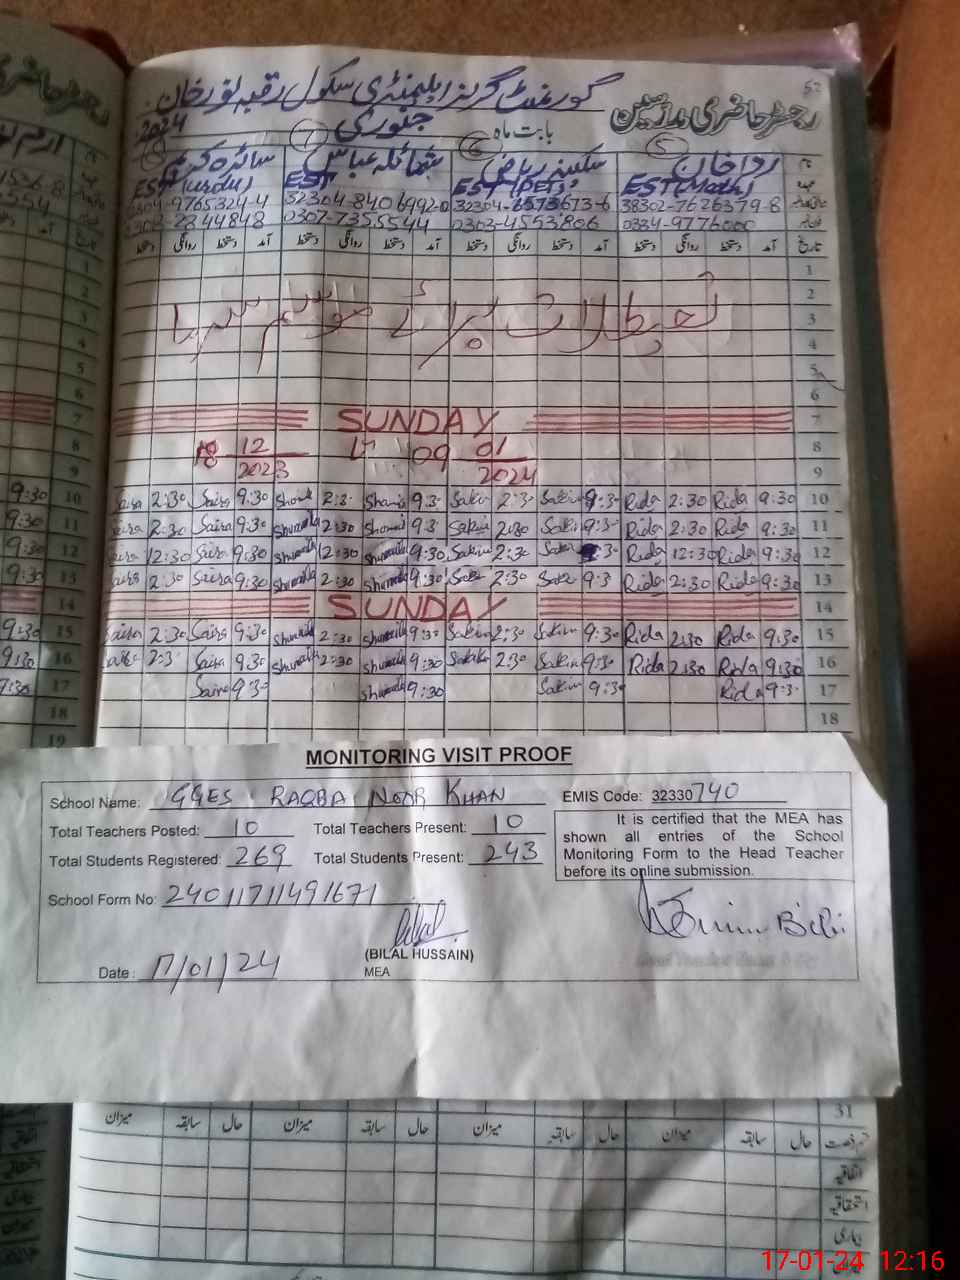 52
گورنمنٹ گرلز ایلیمنٹری سکول رقبہ نور خان
رجسٹر حاضری مدرسین
بابت ماہ جنوری 2024
5 6 7 8
نام ردا خان سکینہ ریاض شمائلہ عباس سائرہ کریم
عہدہ EST(Math) EST(PET) EST EST(urdu)
38302-7626379-8 32304-6573673-6 32304-8406992-0 32304-9765324-4
0334-9776000 0303-4553806 0307-7355544 0303-2844848
تاریخ آمد دستخط روانگی دستخط آمد دستخط روانگی دستخط آمد دستخط روانگی دستخط آمد دستخط روانگی دستخط
1
2
تعطیلات برائے موسم سرما
3
4
5
6
SUNDAY 7
18 12 2023 تا 09 01 2024 8
9
9:30 Saira 2:30 Saira 9:30 2:30 9:3 Sakin 2:30 Sakin 9:3 Rida 2:30 Rida 9:30 10
9:30 Saira 2:30 Saira 9:30 Shumaila 2:30 9:3 Sakin 2:30 Sakin 9:3 Rida 2:30 Rida 9:30 11
9:30 Saira 12:30 Saira 9:30 Shumaila 12:30 Shumaila 9:30 Sakin 2:30 :30 Rida 12:30 Rida 9:30 12
9:30 Saira 2:30 Saira 9:30 Shumaila 2:30 Shumaila 9:30 2:30 9:3 Rida 2:30 Rida 9:30 13
SUNDAY 14
9:30 Saira 2:30 Saira 9:30 Shumaila 2:30 Shumaila 9:30 Sakin 2:30 Sakin 9:30 Rida 2:30 Rida 9:30 15
9:30 2:3 Saira 9:30 Shumaila 2:30 Shumaila 9:30 2:30 Sakin 9:30 Rida 2:30 Rida 9:30 16
9:30 Saira 9:30 Shumaila 9:30 Sakin 9:30 Rida 9:3 17
18
19
MONITORING VISIT PROOF
School Name: GGES RAQBA NOOR KHAN EMIS Code: 32330740
Total Teachers Posted: 10 Total Teachers Present: 10
Total Students Registered: 269 Total Students Present: 243
It is certified that the MEA has
shown all entries of the School
Monitoring Form to the Head Teacher
before its online submission.
School Form No: 24011711491671
Bilal
Bibi
(BILAL HUSSAIN)
Date: 17/01/24 MEA
31
حال سابقہ میزان حال سابقہ میزان حال سابقہ میزان حال سابقہ میزان
اتفاقیہ
استحقاقیہ
بیماری
17-01-24 12:16